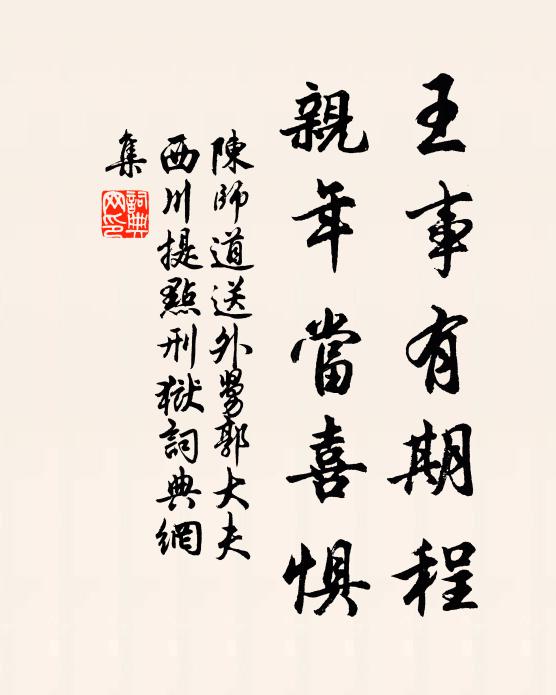 王事有期程
親年當喜惧
陳師道送外舅郭大夫
西川提點刑獄詞典網
集
詞典网印